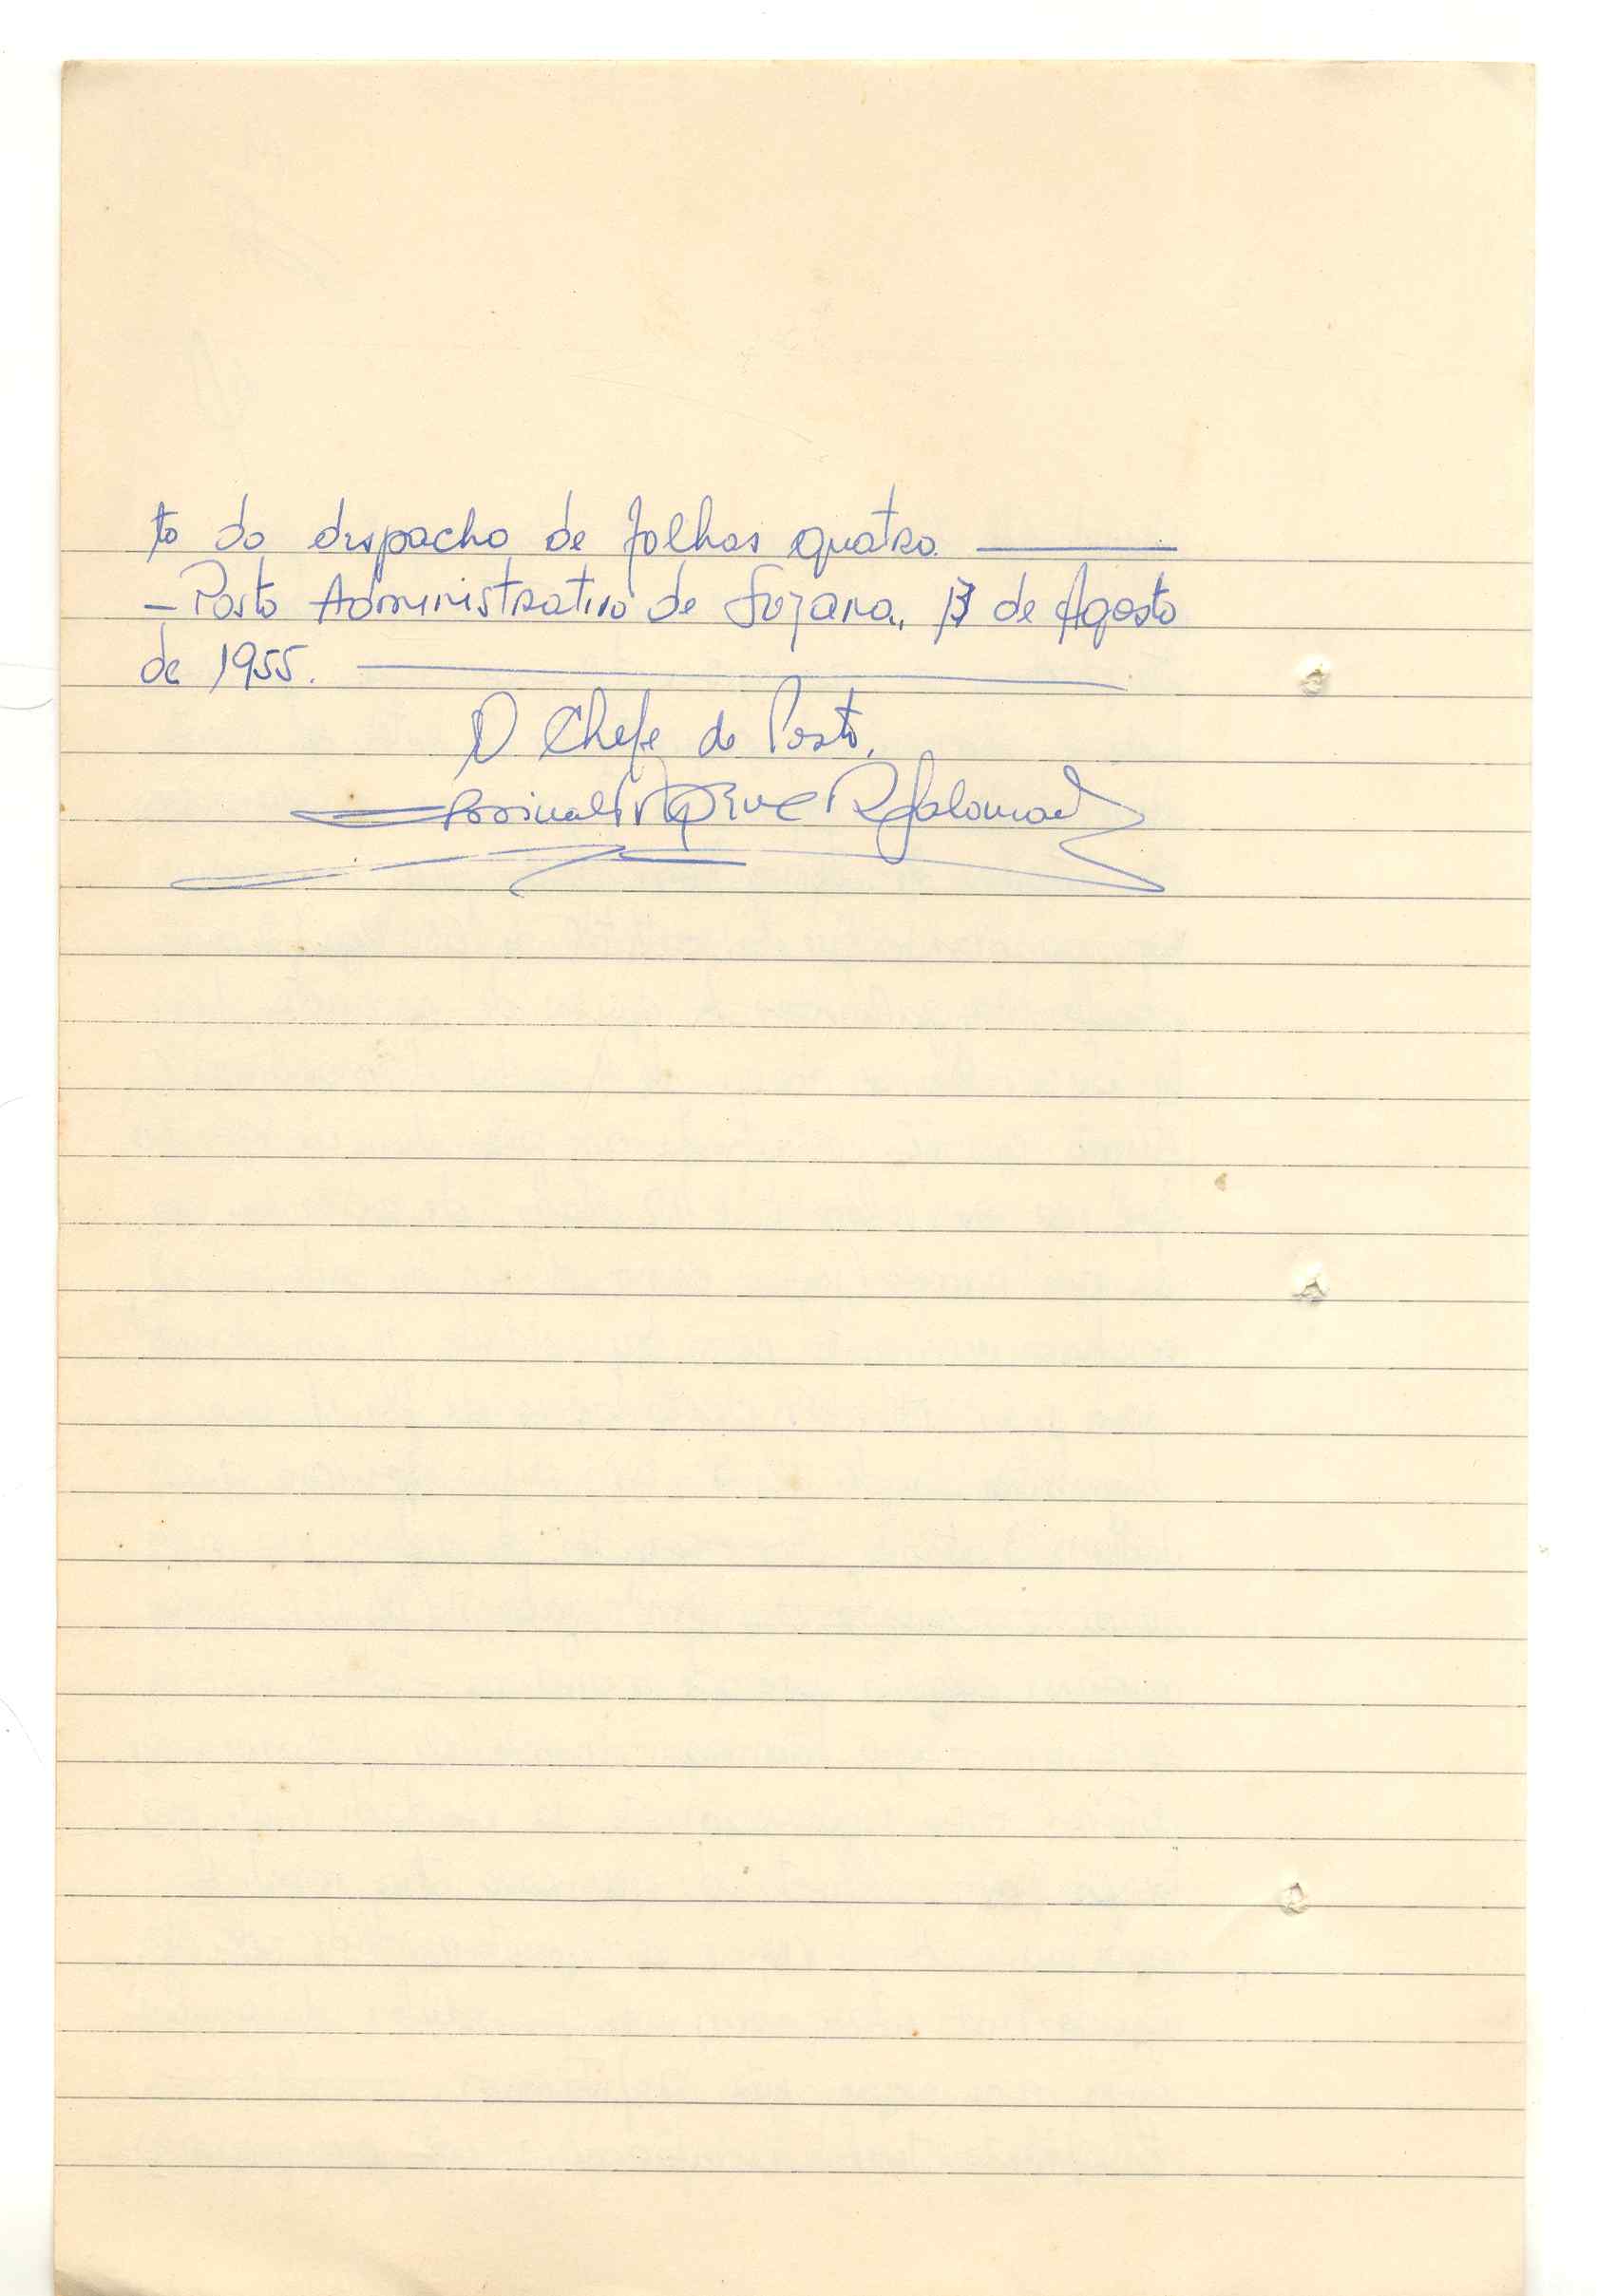 to do despacho de folhas quatro.
— Posto Administrativo de Sozana, 13 de Agosto
de 1955.
O Chefe do Posto,